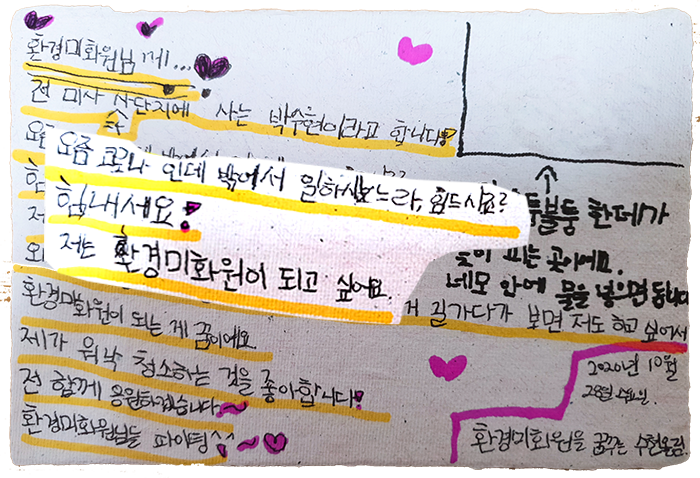 환경미화원님께...
전 미사 상단지에 사는 박수현이라고 합니다!
요즘 코로나 인데 밖에서 일하시느라 힘드시죠?
힘내세요!
저는 환경미화원이 되고 싶어요.
길가다가 보면 저도 하고 싶어서
환경미화원이 되는 게 꿈이에요
제가 워낙 청소하는 것을 좋아합니다!
전 함께 응원하겠습니다~
환경미화원님들 파이팅^^~
울퉁불퉁 한데가
꽃이 피는 곳이에요.
네모 안에 물을 넣으면 됩니다
2020년 10월
28일 수요일.
환경미화원을 꿈꾸는 수현올림.